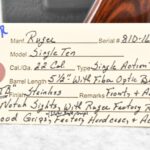 Manf. Ruger Serial # 810-16
Model Single Ten
Cal./Ga. 22 Cal Action Single Action
Barrel Length 5½" With Fiber Optic
Stainless Fronts, +
Notch Sights, With Ruger Factory
Wood Grips, Factory Hard case, +